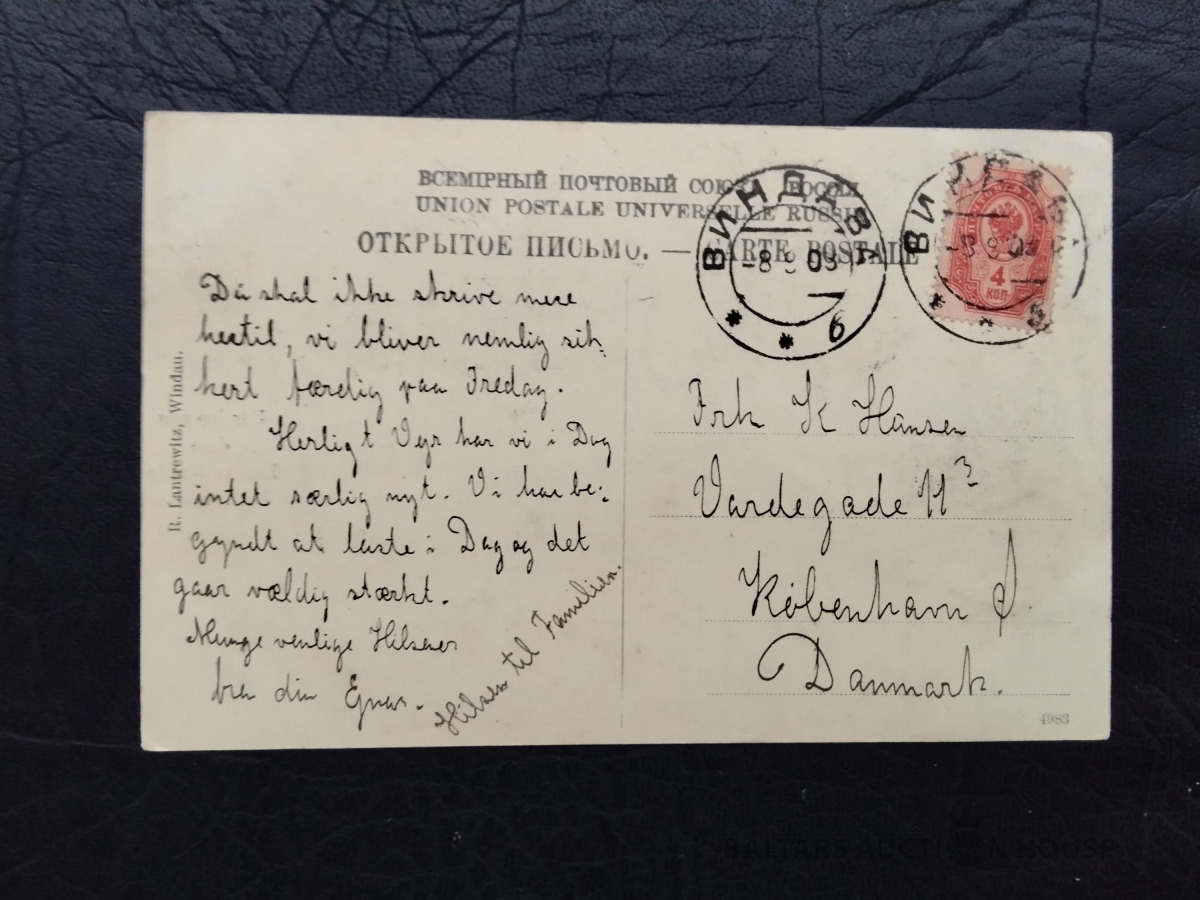 ВСЕМІРНЫЙ ПОЧТОВЫЙ СОЮЗЪ РОССІЯ
UNION POSTALE UNIVERSELLE RUSSIE
ОТКРЫТОЕ ПИСЬМО. — CARTE POSTALE
ВИНДАВА
-8 9 09
6
ВИНДАВА
-8 9 09
4
КОП
Du skal ikke skrive mere
hertil, vi bliver nemlig sik-
kert færdig paa Fredag.
Herligt Vejr har vi i Dag
intet særlig nyt. Vi har be-
gyndt at laste i Dag og det
gaar vældig stærkt.
Mange venlige Hilsener
fra din
Hilsen til Familien.
Frk K Hansen
Vardegade 11 3
København Ø.
Danmark.
R. Lantrewitz, Windau.
4983
BALTARS AUCTION HOUSE